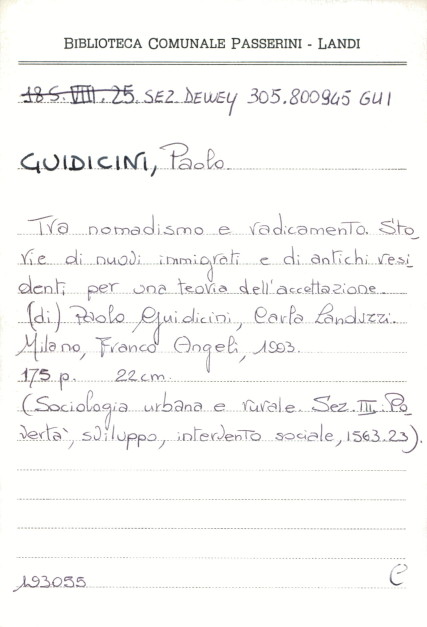 BIBLIOTECA COMUNALE PASSERINI - LANDI
18 S. VIII. 25. SEZ. DEWEY 305.800945 GUI
GUIDICINI, Paolo
Tra nomadismo e radicamento. Sto_
rie di nuovi immigrati e di antichi resi_
denti per una teoria dell'accettazione.
(di) Paolo Guidicini, Carla Landuzzi.
Milano, Franco Angeli, 1993.
175 p. 22 cm.
(Sociologia urbana e rurale. Sez. III. Po_
vertà, sviluppo, intervento sociale, 1563.23).
193055 C